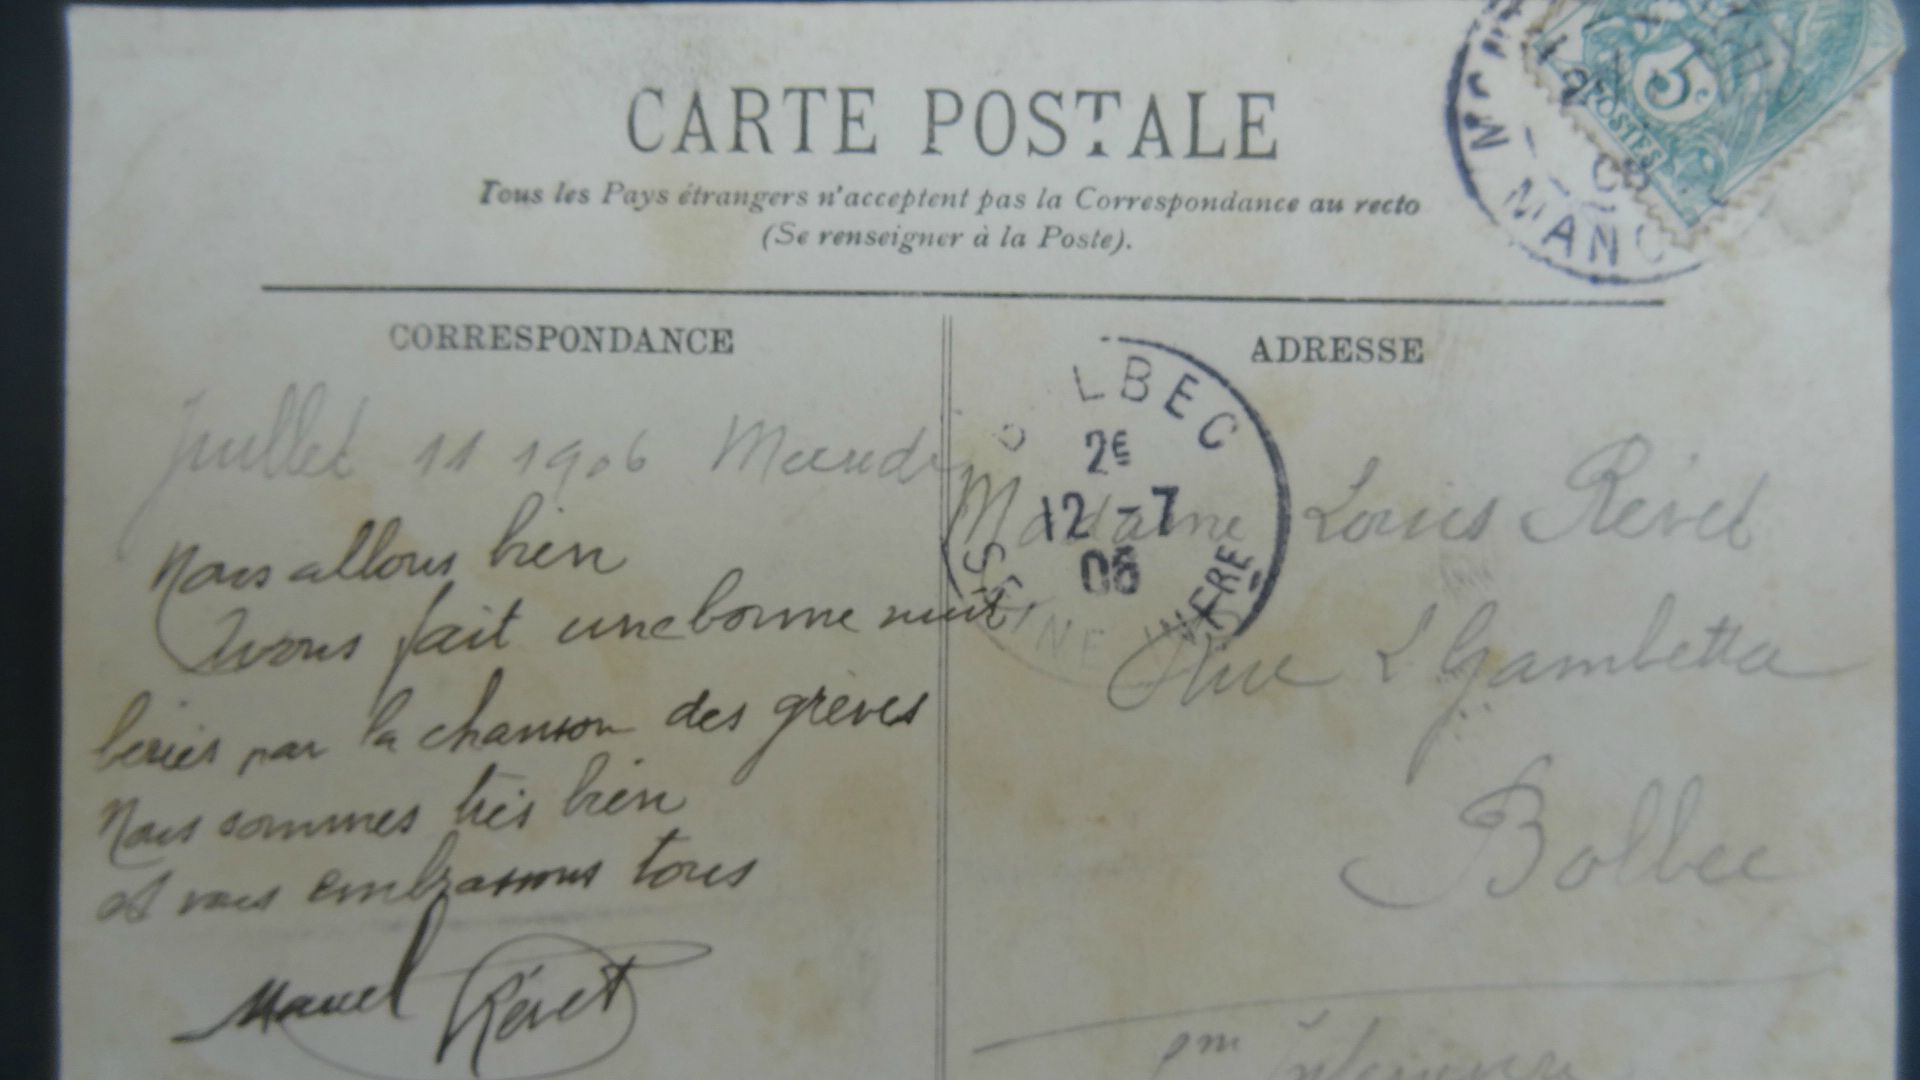 CARTE POSTALE
Tous les Pays étrangers n'acceptent pas la Correspondance au recto
(Se renseigner à la Poste).
5c
POSTES
MANC
CORRESPONDANCE
Juillet 11 1906 Mardi
Nous allons bien
Avons fait une bonne nuit
bercés par la chanson des grèves
Nous sommes très bien
et vous embrassons tous
Marcel Révet
ADRESSE
LBEC
2E
12 -7
06
SEINE INFERE
Madame Louis Révet
Rue L Gambetta
Bolbec